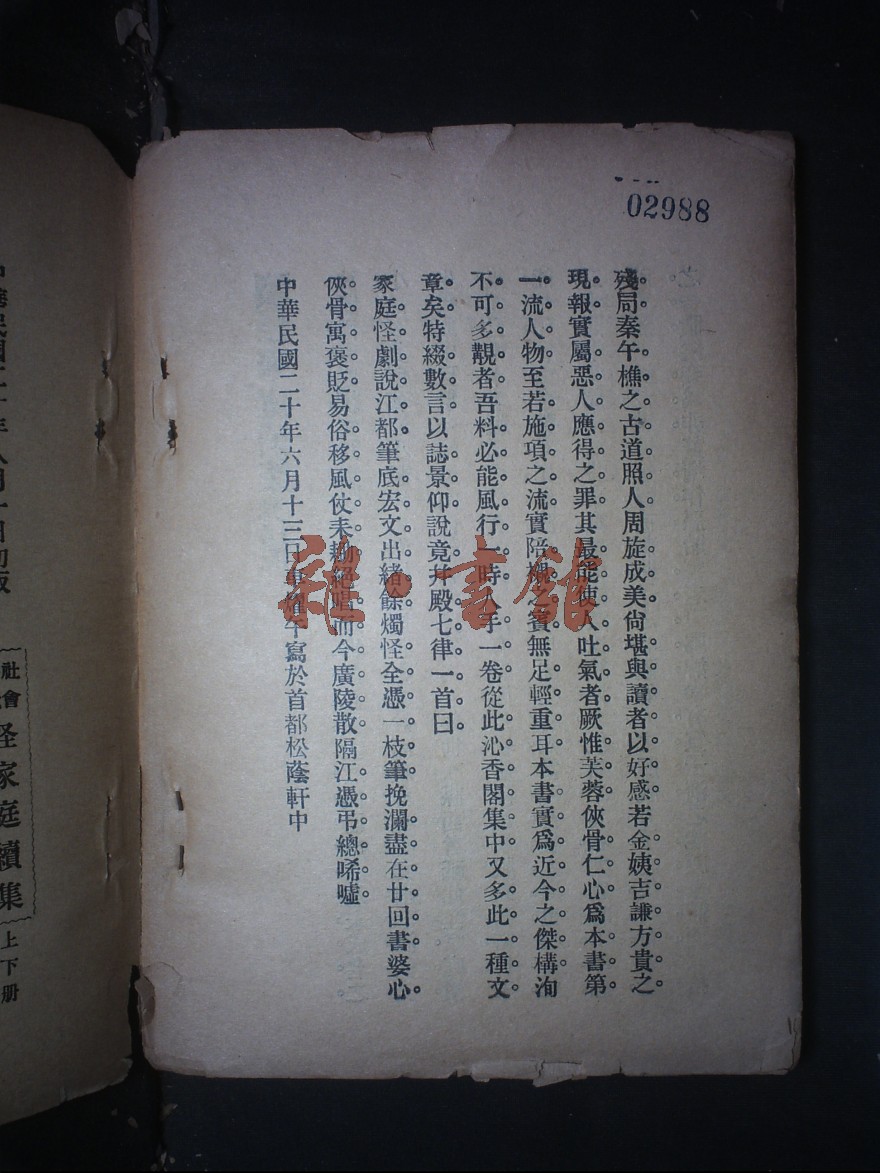 02988
殘局秦午樵之古道照人周旋成美尙堪與讀者以好感若金姨吉謙方貴之
現報實屬惡人應得之罪其最能使人吐氣者厥惟芙蓉俠骨仁心爲本書第
一流人物至若施項之流實陪襯之賓無足輕重耳本書實爲近今之傑構洵
不可多覯者吾料必能風行一時人手一卷從此沁香閣集中又多此一種文
章矣特綴數言以誌景仰說竟幷殿七律一首曰
家庭怪劇說江都筆底宏文出緒餘燭怪全憑一枝筆挽瀾盡在廿回書婆心
俠骨寓褒貶易俗移風仗耒 絕唱而今廣陵散隔江憑弔總唏噓
中華民國二十年六月十三日 午寫於首都松蔭軒中
雜·書館
社會
怪家庭續集
上下册